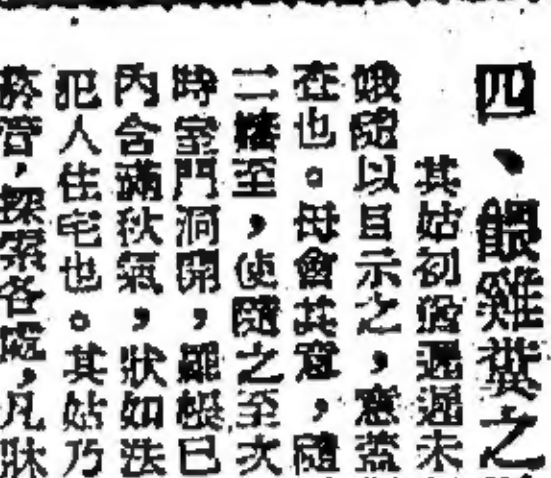 四、餵雞糞之
其姑初猶遲遲未
娥隨以目示之，意蓋
在也。母會其意，隨
二嬸至，使隨之至次
時室門洞開，羅帳已
內含滿秋氣，狀如法
犯人住宅也。其姑乃
管，探索各處，凡牀